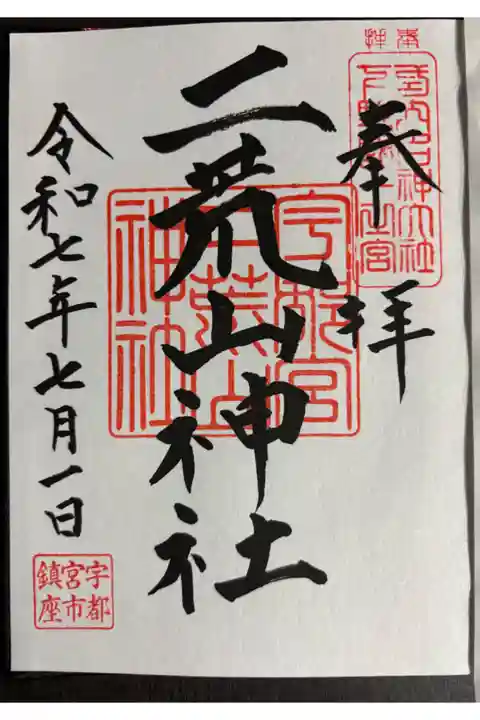 奉拝
二荒山神社
令和七年七月一日
宇都宮
二荒山
神社
宇都
宮市
鎮座